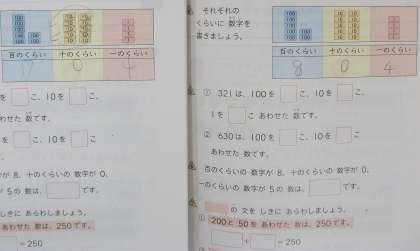 百のくらい 十のくらい 一のくらい
0
を □ こ、10を □ こ、
わせた 数です。
を □ こ、10を □ こ
が 8、十のくらいの 数字が 0、
が 5の 数は、□ です。
しきに あらわしましょう。
あわせた 数は、250です。
= 250
それぞれの
くらいに 数字を
書きましょう。
百のくらい 十のくらい 一のくらい
8 0 4
① 321は、100を □ こ、10を □ こ、
1を □ こ あわせた 数です。
② 630は、100を □ こ、10を □ こ
あわせた 数です。
百のくらいの 数字が 8、十のくらいの 数字が 0、
一のくらいの 数字が 5の 数は、□ です。
の 文を しきに あらわしましょう。
① 200と 50を あわせた 数は、250です。
□ + □ = 250